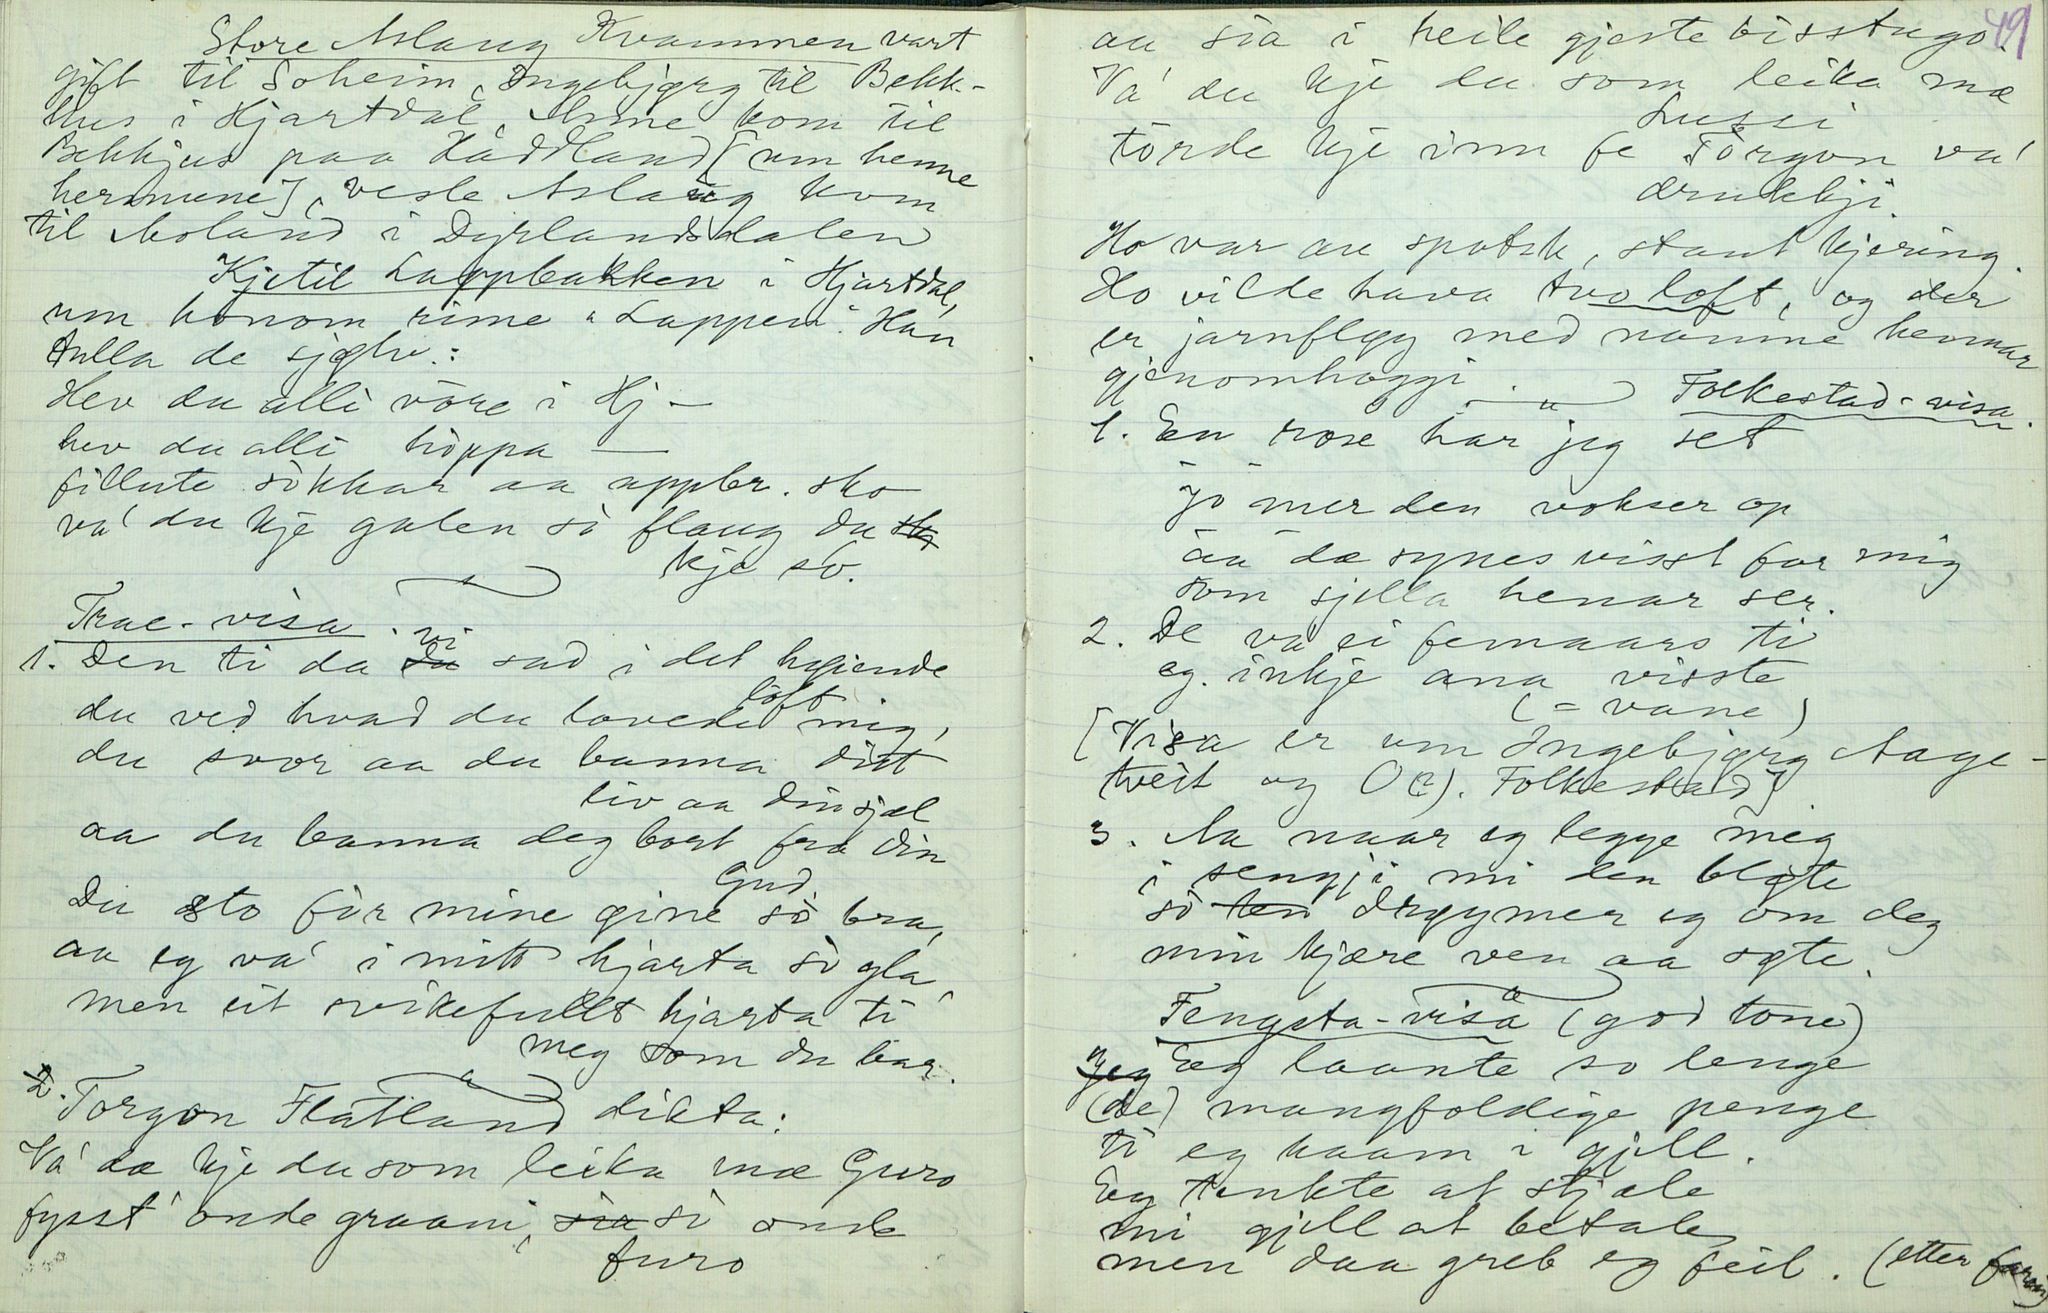 Store Aslaug Kvammen vart
gift til Soheim, Ingebjørg til Bekk-
hus i Hjartdal, Anne kom til
Bekkhus paa Håddland [um henne
hermune], vesle Aslaug kom
til Moland i Dyrlandsdalen
Kjetil Lappbakken i Hjartdal,
um honom rime "Lappen". Han
tulla de sjølv.:
Hev du alli vòre i Hj —
hev du alli hòppa —
fillute sòkkar aa uppbr. sko
va' du kje galen sò flaug du
kje so.
Trae-visa.
1. Den ti da vi sad i det høiende
du ved hvad du lovede mig,
løft
du svor aa du banna ditt
liv aa din sjæl
aa du banna deg bort fra din
Gud
Du sto fòr mine øine sò bra,
aa eg va' i mitt hjarta sò gla,
men eit svikefullt hjarta ti
meg som du bar.
2. Torgon Flatland dikta:
Va' dæ kje du som leika mæ Guro
fysst' onde graani, sò onde
furo
49
aa sia i heile gjestebisstugo.
Va' du kje du som leika mæ
Lussi
tòrde kje inn fe Tòrgon va'
drukkji.
Ho var au spotsk, staut kjering.
Ho vilde hava tvo loft, og der
er jarnfløy med namne hennar
gjenomhoggji.
Folkestad-visa.
1. En rose har jeg set
jò mer den vokser op
aa dæ synes visst for mig
som sjella henar ser.
2. De va ei femaars ti
eg inkje ana visste
(= vane)
[Visa er um Ingebjørg Aage-
tveit og O(?). Folkestad]
3. Aa naar eg legge meg
i sengji mi den bløte
sò drøymer eg om deg
min kjære ven aa søte.
Fengsta-visa (god tone)
Eg laante so lenge
(de) mangfoldige penge
ti eg kaam i gjell.
Eg tenkte at stjæle
mi gjell at betale
men daa greb eg feil. (etter